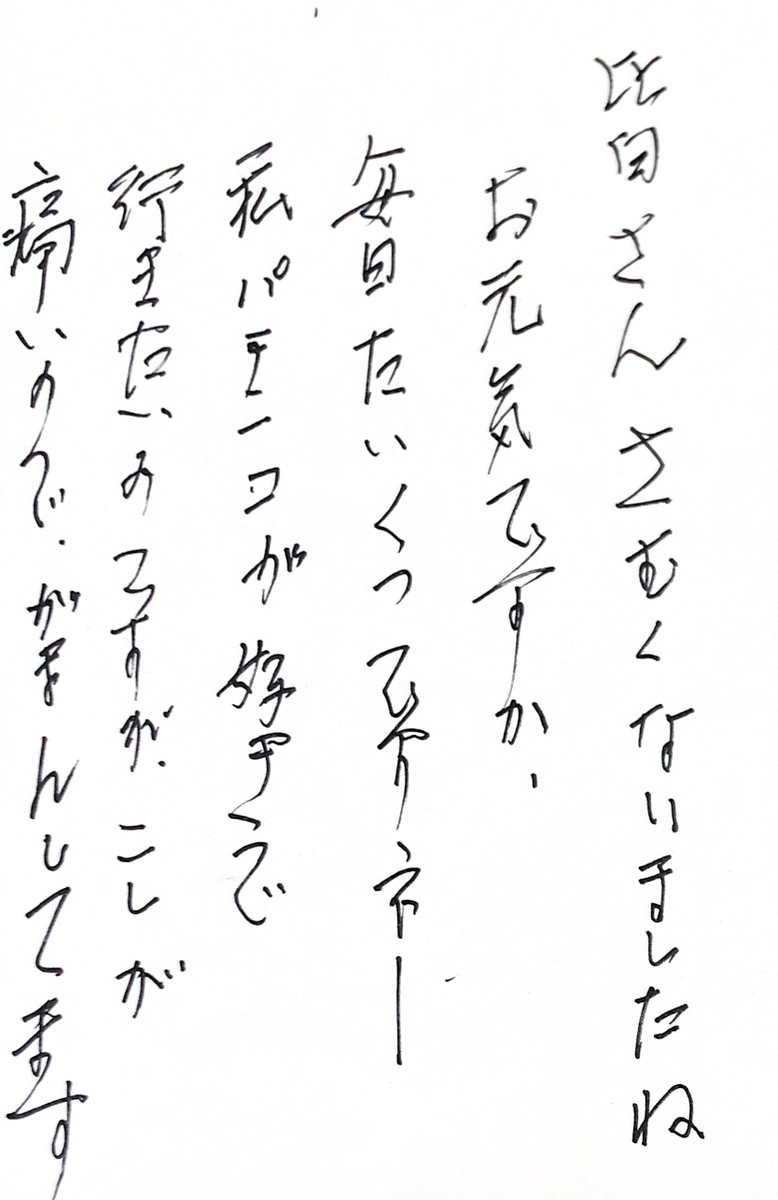 皆さんさむくないましたね
お元気ですか、
毎日たいくつですネー
私パチンコが好きで
行きたいのですが、こしが
痛いので、がまんしてます